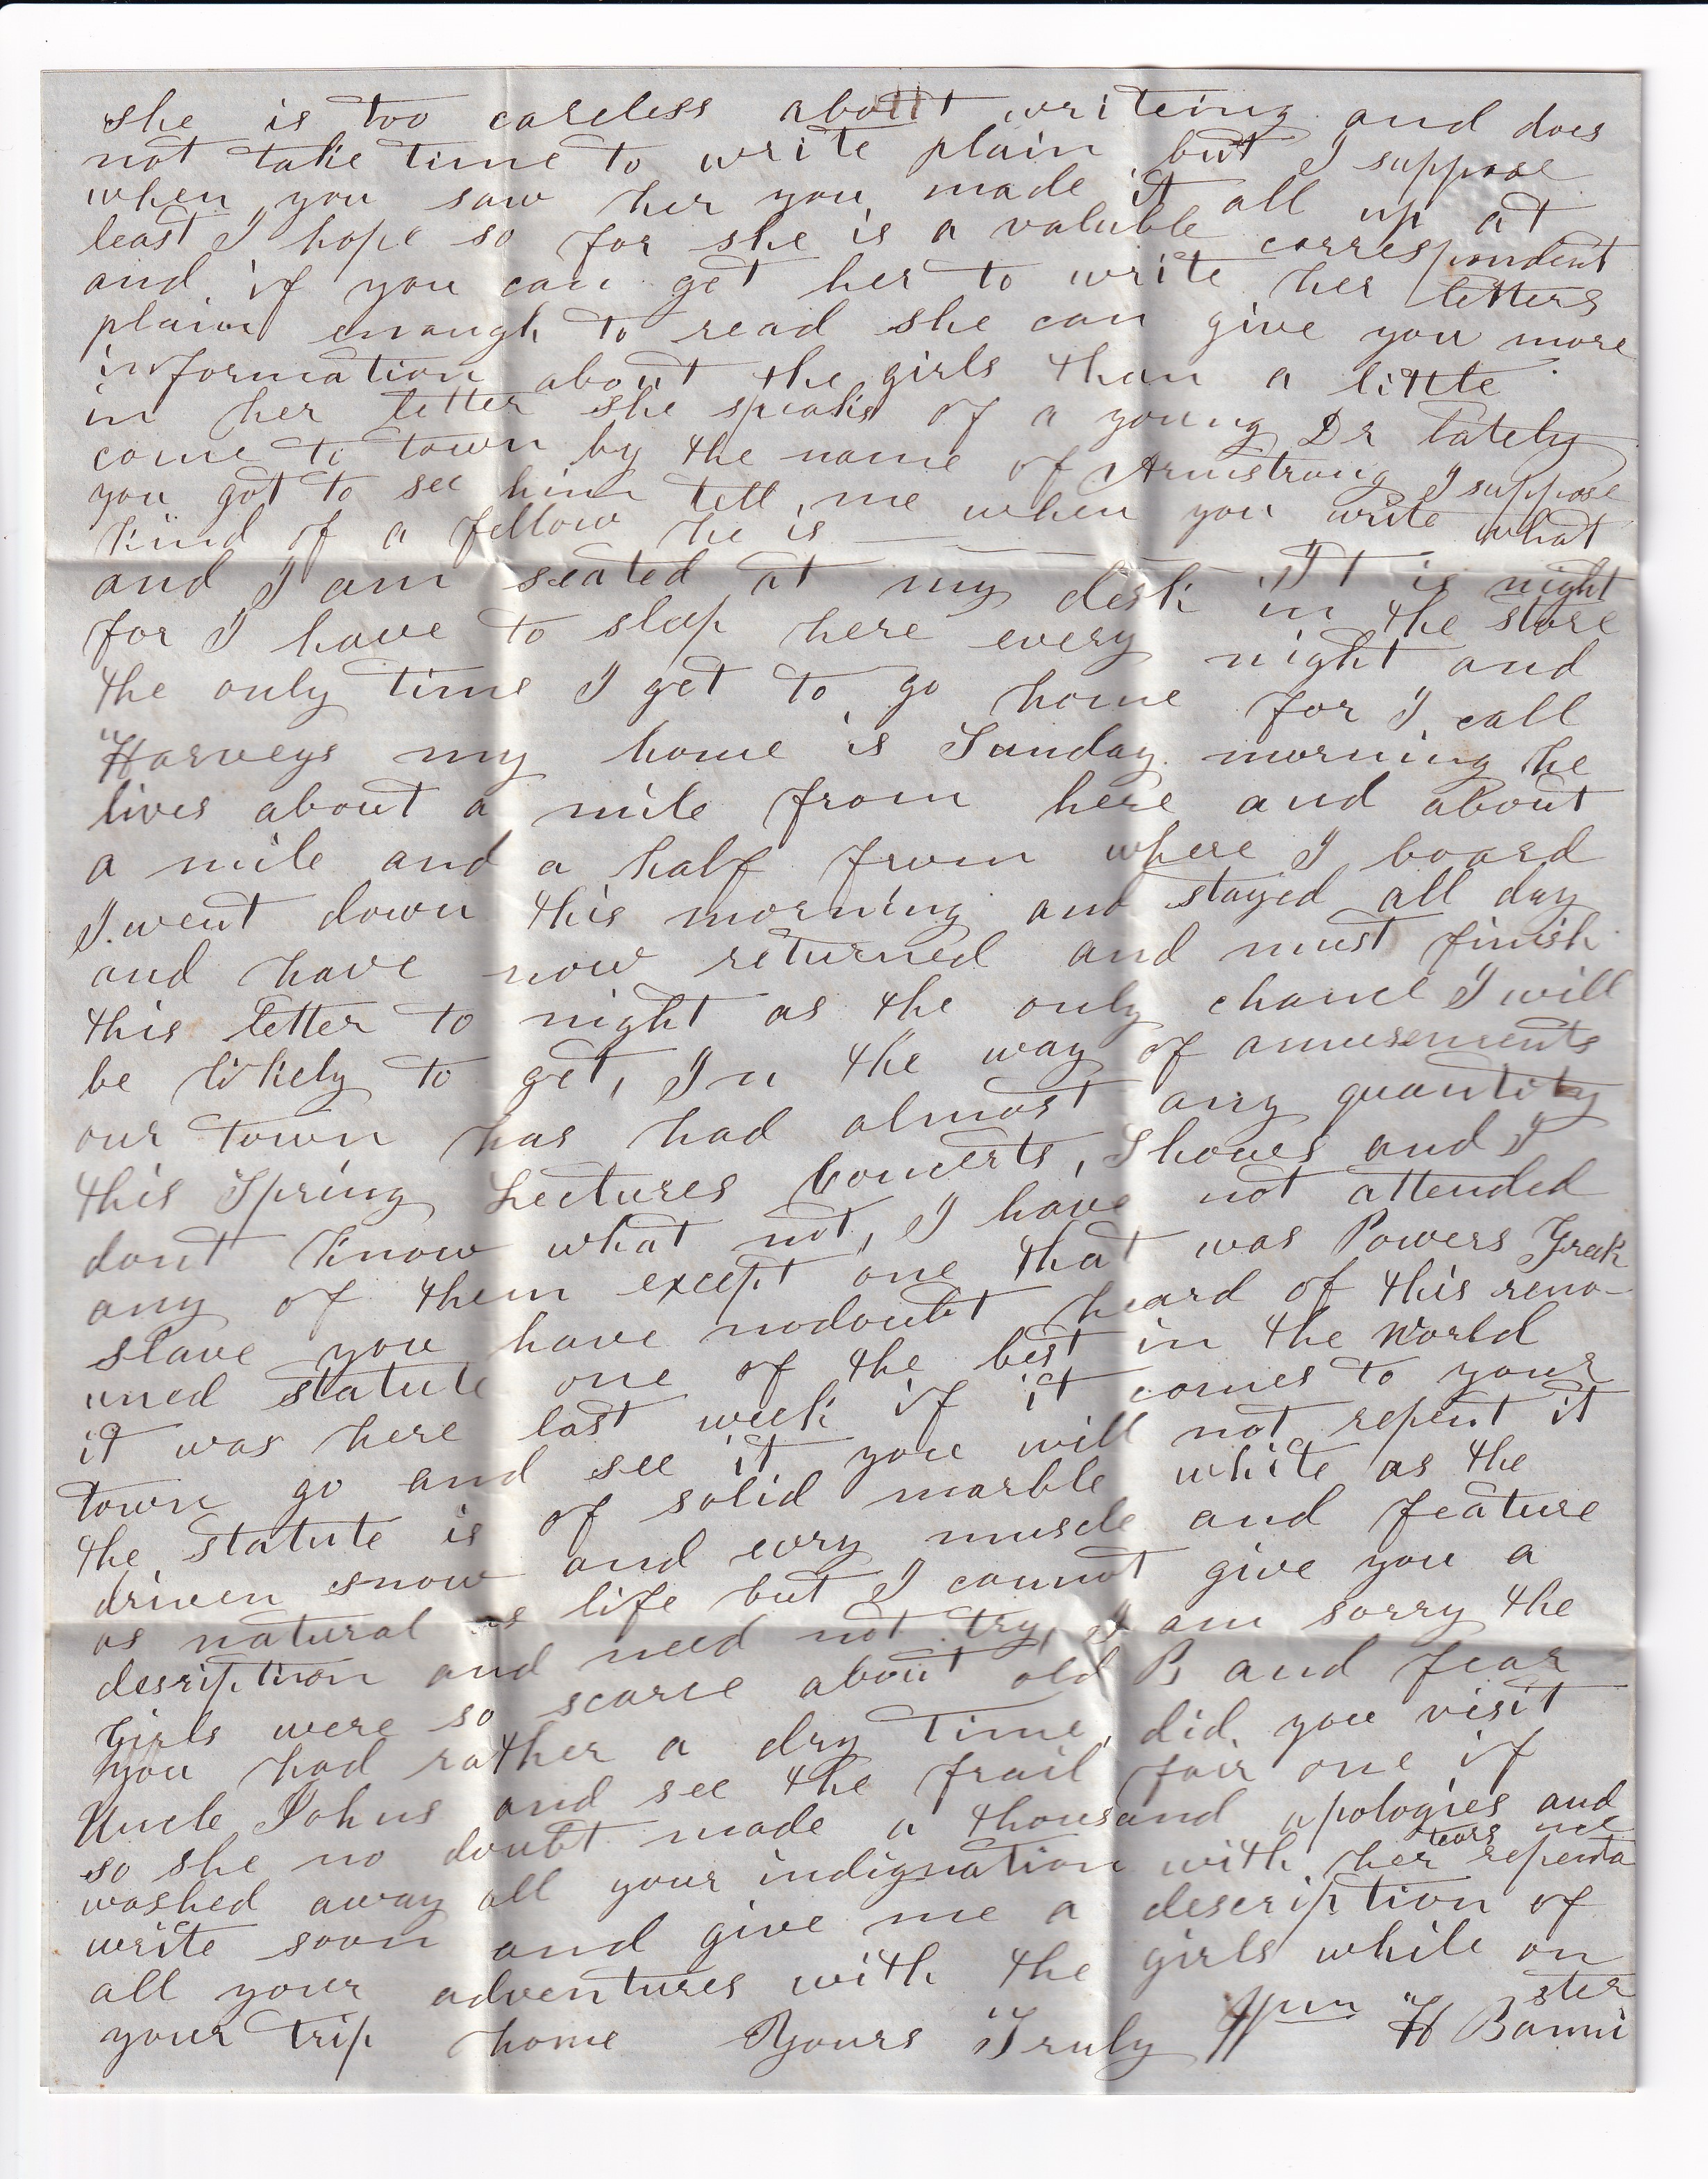 she is too careless about writeing and does
not take time to write plain but I suppose
when you saw her you made it all up at
least I hope so for she is a valuble correspondent
and if you can get her to write her letters
plain enough to read she can give you more
information about the girls than a little
in her letter she speaks of a young Dr lately
come to town by the name of Armstrong I suppose
you got to see him tell me when you write what
kind of a fellow he is — — — It is night
and I am seated at my desk in the store
for I have to sleep here every night and
the only time I get to go home for I call
Harveys my home is Sunday morning he
lives about a mile from here and about
a mile and a half from where I board
I went down this morning and stayed all day
and have now returned and must finish
this letter to night as the only chance I will
be likely to get, In the way of amusements
our town has had almost any quantity
this Spring Lectures Concerts, Shows and I
dont know what not, I have not attended
any of them except one that was Powers Greek
slave you have nodoubt heard of this reno-
uned statute one of the best in the world
it was here last week if it comes to your
town go and see it you will not repent it
the statute is of solid marble white as the
driven snow and evry muscle and feature
as natural as life but I cannot give you a
desription and need not try, I am sorry the
girls were so scarce about old B and fear
you had rather a dry time, did you visit
Uncle Johns and see the frail fair one if
so she no doubt made a thousand apologies and
washed away all your indignation with her repenta nce tears
write soon and give me a description of
all your adventures with the girls while on
your trip home Yours Truly Wm H Bannister